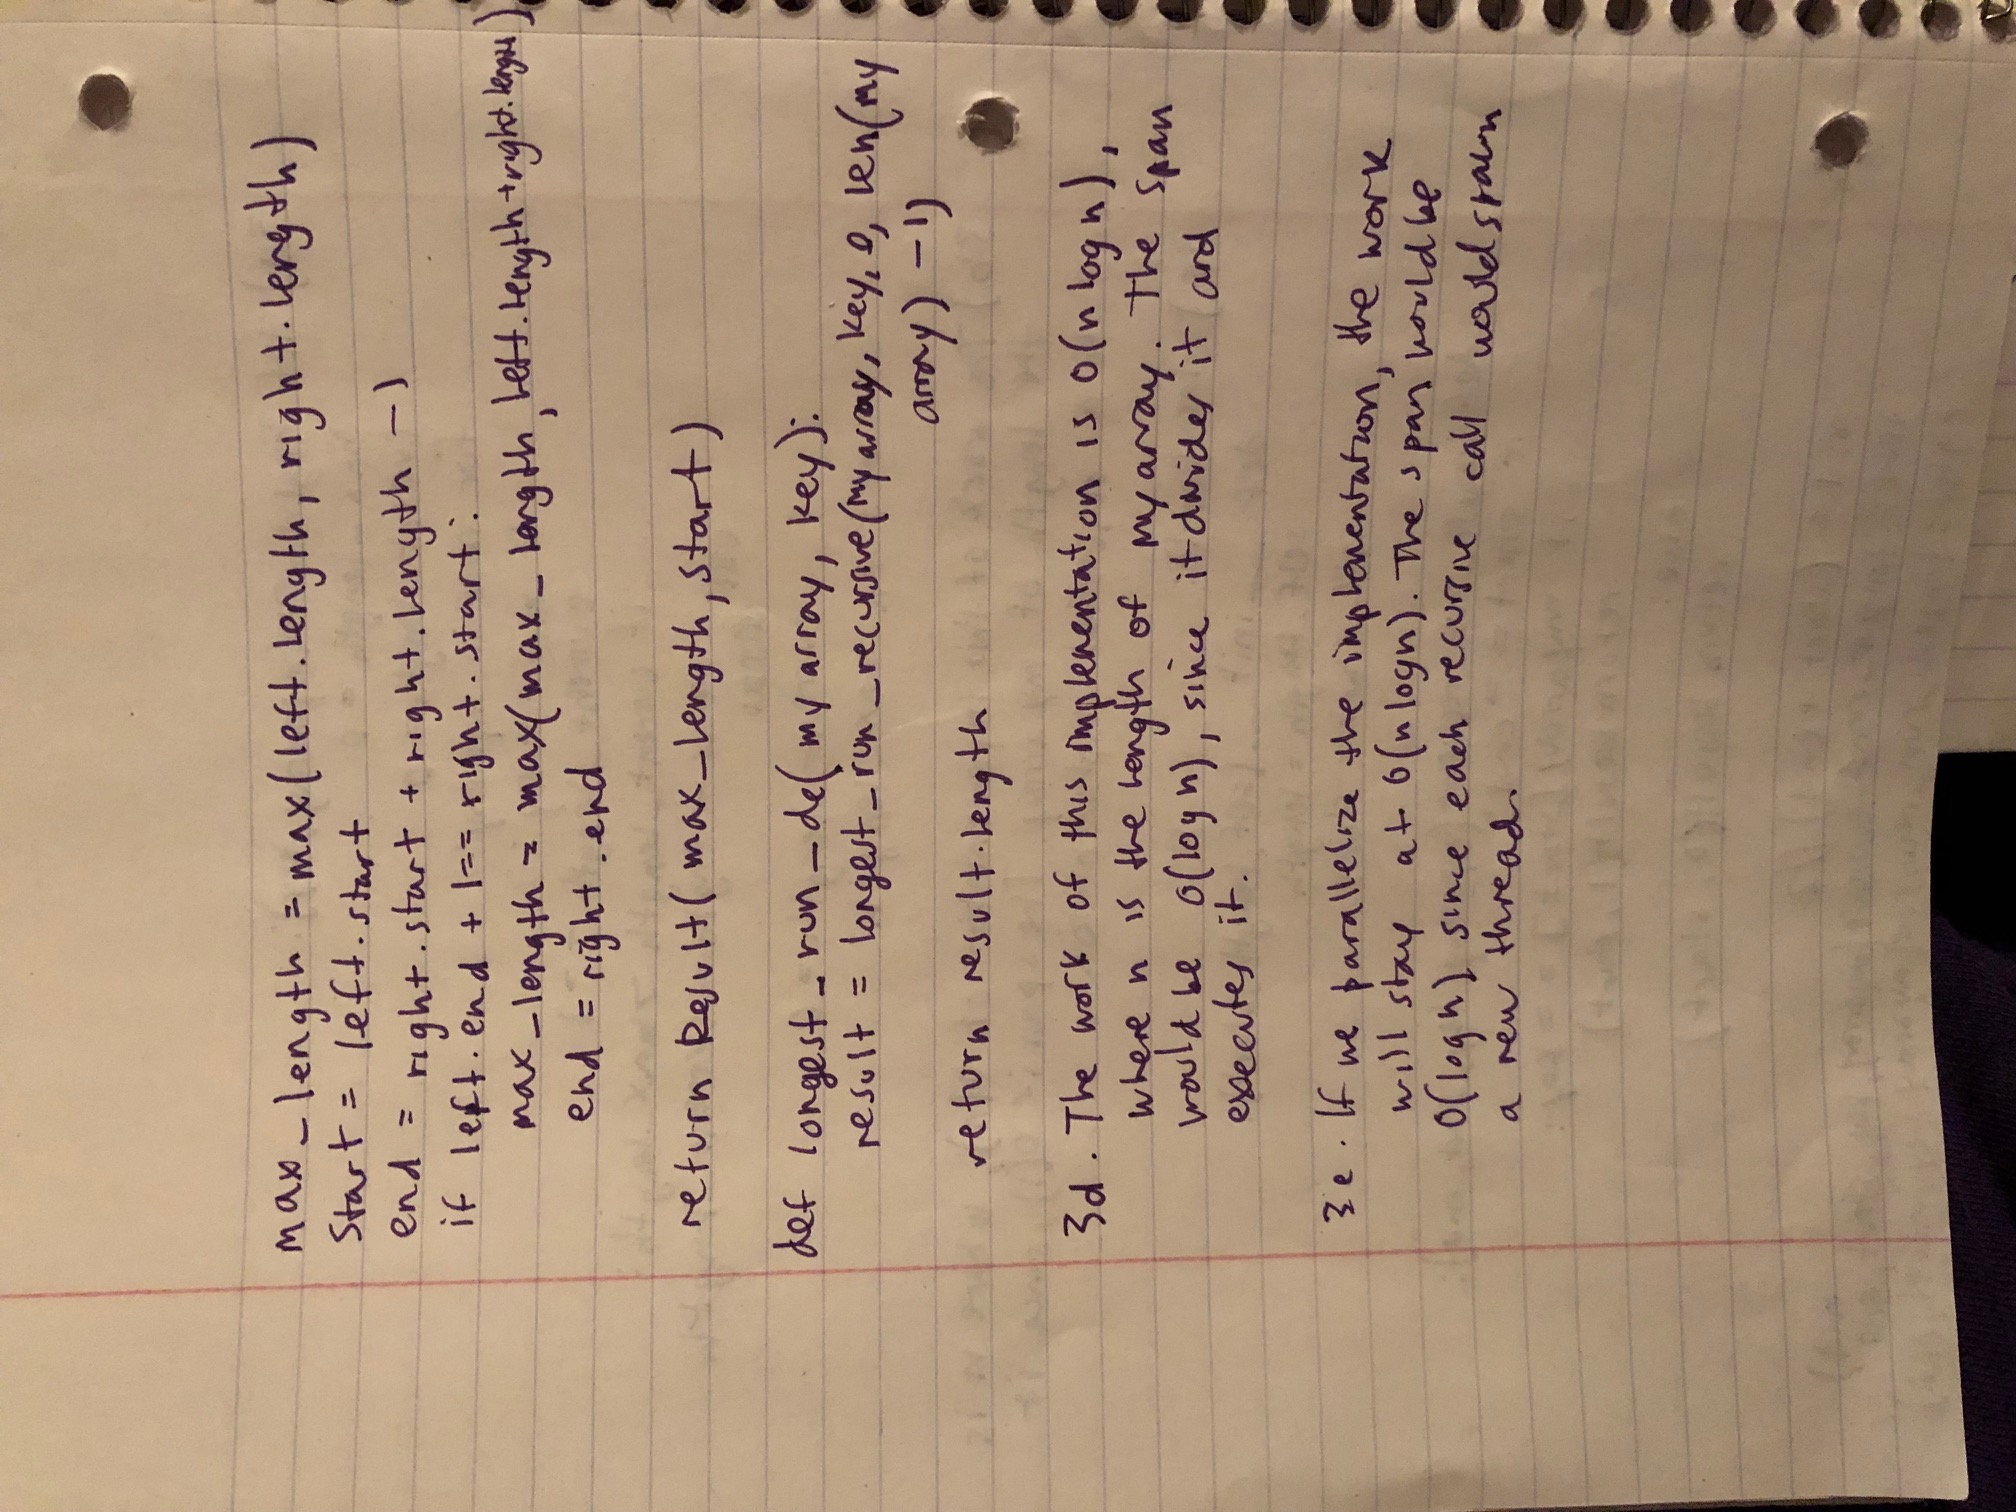 max_length = max(left.length, right.length)
Start = left.start
end = right.start + right.length - 1
if left.end + 1 == right.start:
max_length = max(max_length, left.length + right.length)
end = right.end
return Result(max_length, start)
def longest_run_de(my array, key):
result = longest_run_recursive(my array, key, 0, len(my
array) - 1)
return result.length
3d. The work of this implementation is O(n log n),
where n is the length of my array. The span
would be O(log n), since it divides it and
executes it.
3e. If we parallelize the implementation, the work
will stay at O(n logn). The span would be
O(log n) since each recursive call would spawn
a new thread.